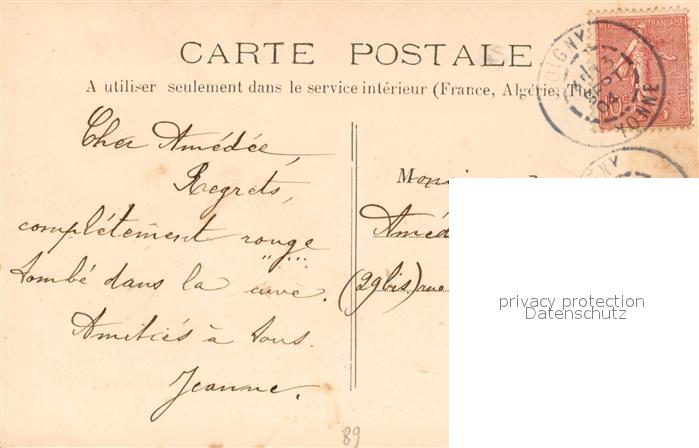 CARTE POSTALE
A utiliser seulement dans le service intérieur (France, Algérie, Tu
RÉPUBLIQUE FRANÇAISE
10
POSTES
JOIGNY
13
SEPT
04
YONNE
Cher Amédée,
Regrets,
complètement rouge
tombé dans la cuve.
Amitiés à tous.
Jeanne.
Monsieur
Améd
(29bis) rue
privacy protection
Datenschutz
89